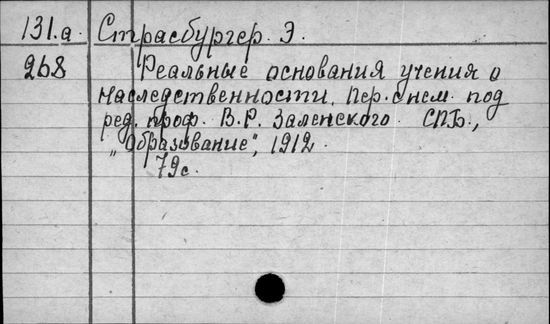 131.а. Страсбургер. Э.
268 Реальные основания учения о
наследственности. Пер. с нем. под
ред. проф. В.Р. Заленского. СПБ.,
„Образование", 1912.
79с.